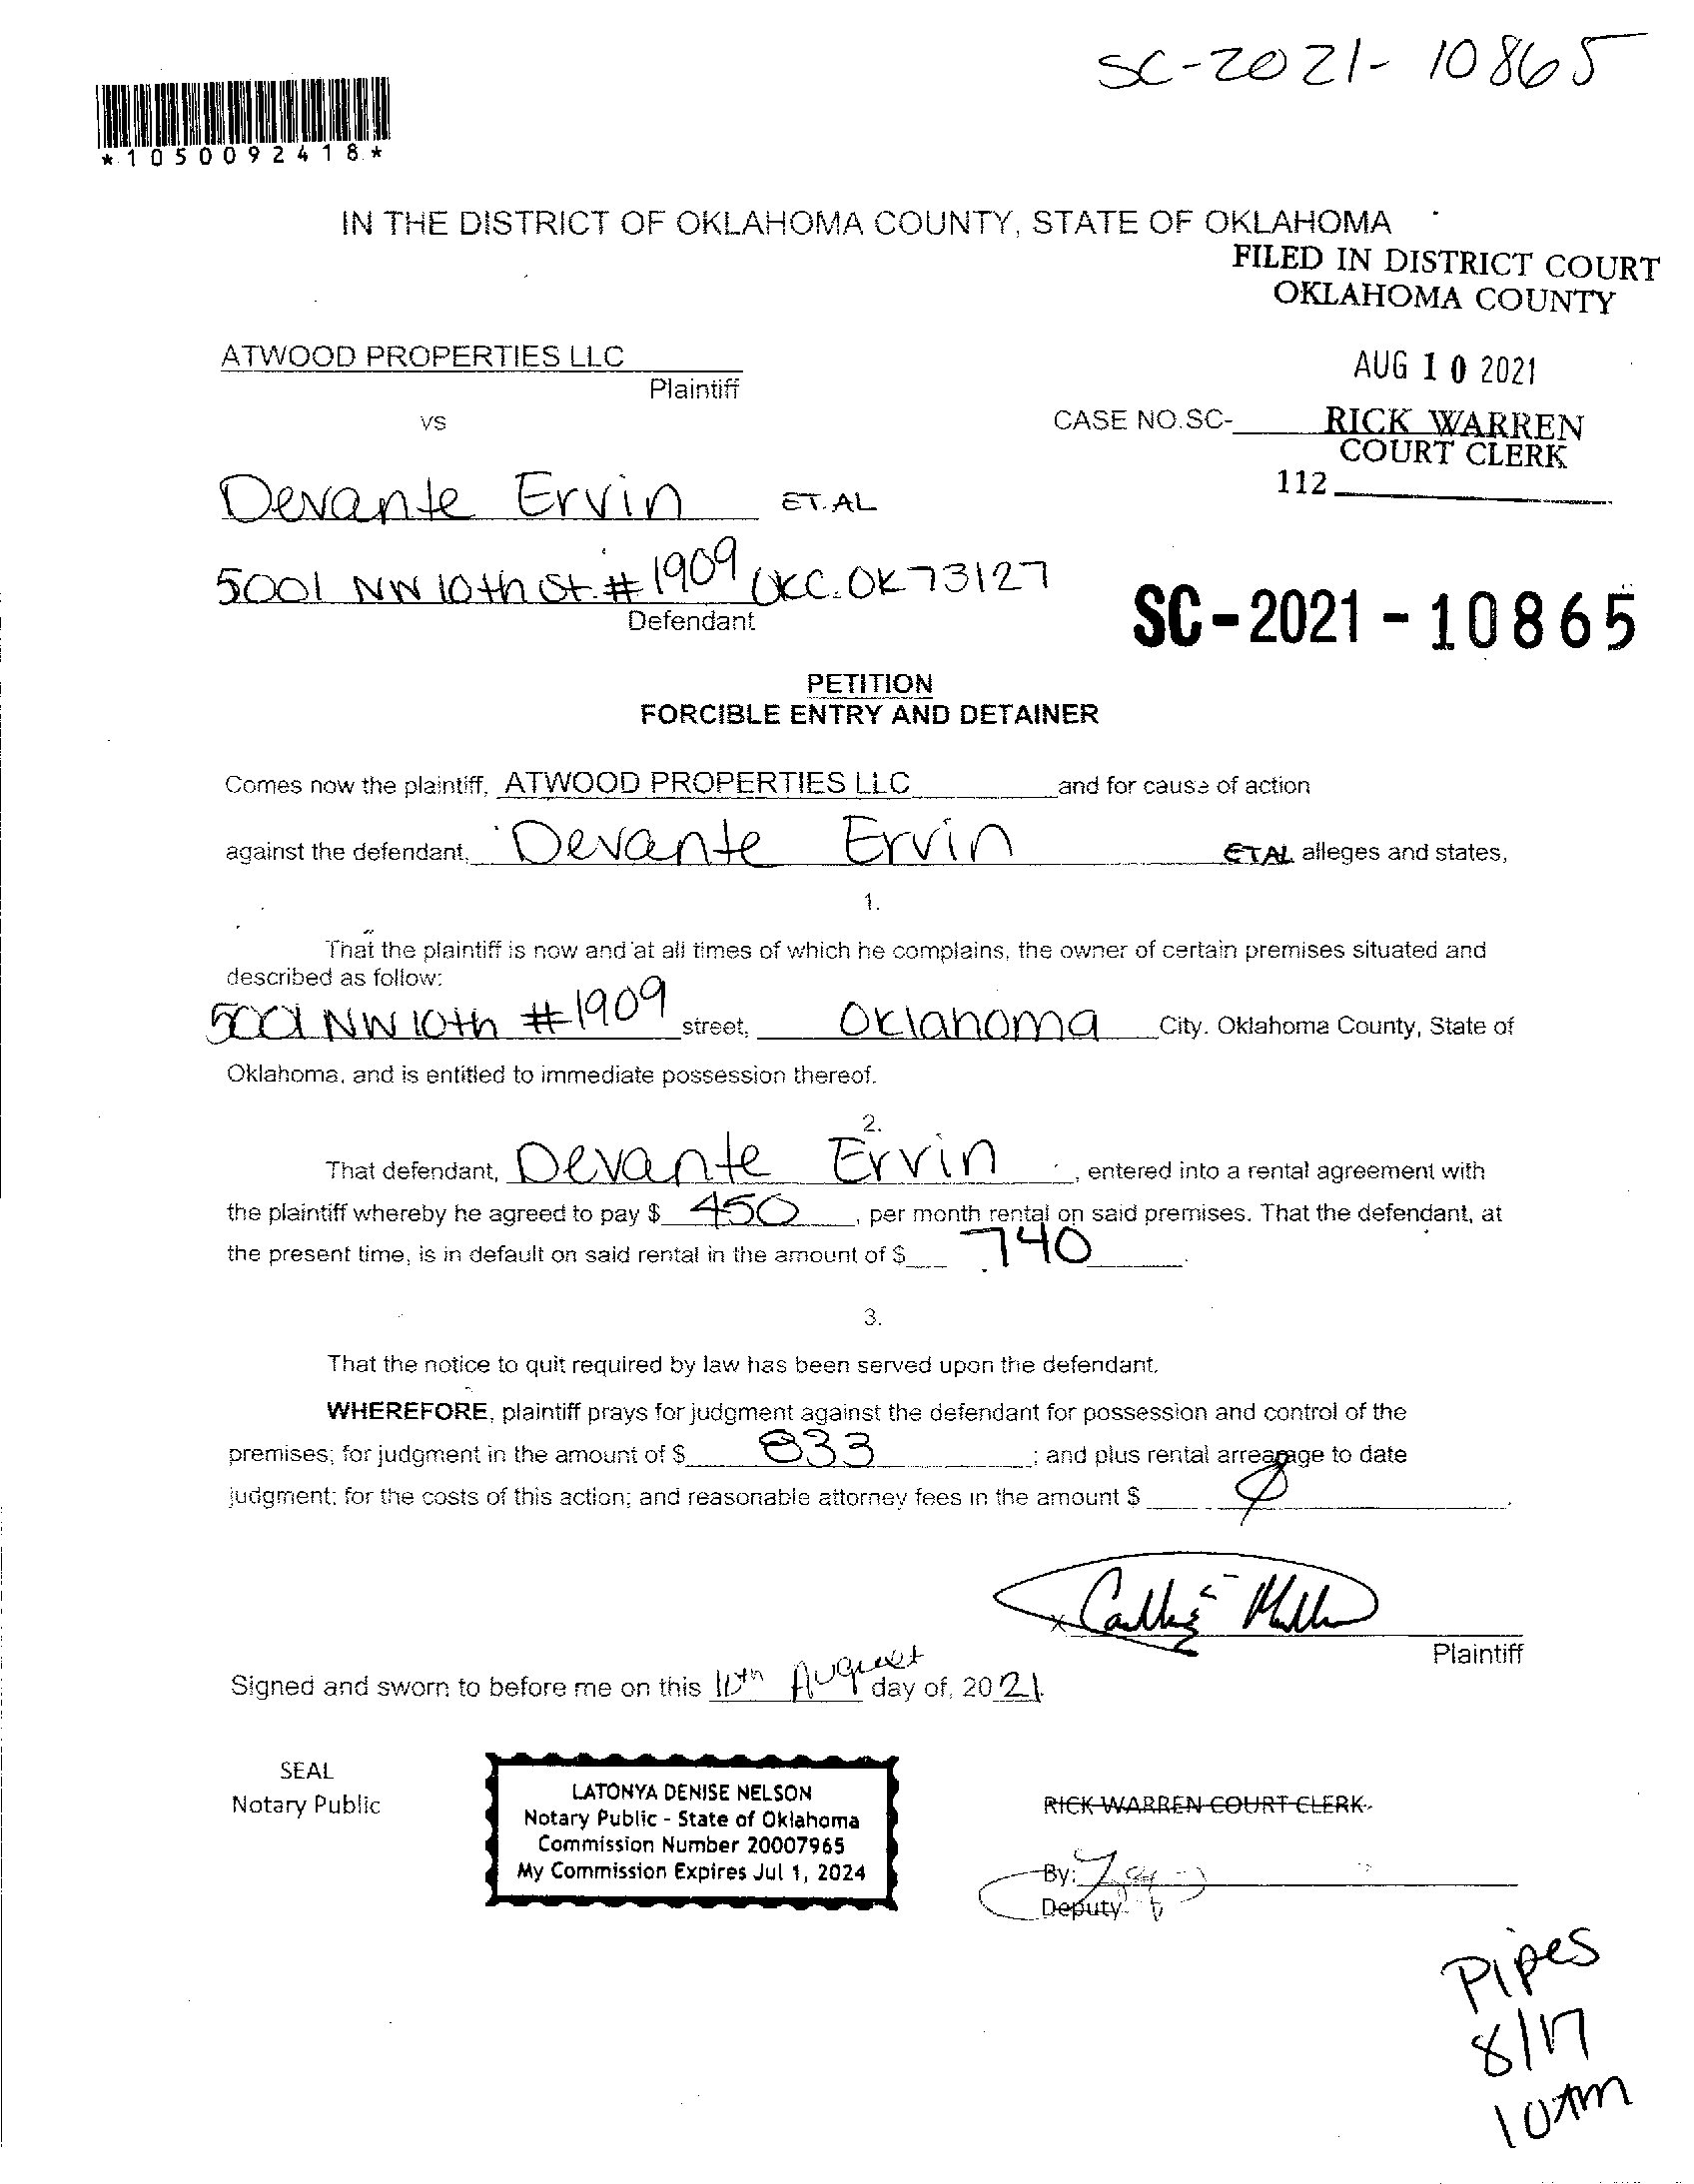 SC-2021-10865
*1050092418*
IN THE DISTRICT OF OKLAHOMA COUNTY, STATE OF OKLAHOMA
FILED IN DISTRICT COURT
OKLAHOMA COUNTY
ATWOOD PROPERTIES LLC
AUG 10 2021
Plaintiff
vs
CASE NO.SC-
RICK WARREN
COURT CLERK
112
Devante Ervin ET.AL
5001 NW 10th St. #1909 OKC. OK 73127
Defendant
SC-2021-10865
PETITION
FORCIBLE ENTRY AND DETAINER
Comes now the plaintiff, ATWOOD PROPERTIES LLC and for cause of action
against the defendant, Devante Ervin ETAL alleges and states,
1.
That the plaintiff is now and at all times of which he complains, the owner of certain premises situated and
described as follow:
5001 NW 10th #1909 street, Oklahoma City. Oklahoma County, State of
Oklahoma, and is entitled to immediate possession thereof.
2.
That defendant, Devante Ervin, entered into a rental agreement with
the plaintiff whereby he agreed to pay $ 450, per month rental on said premises. That the defendant, at
the present time, is in default on said rental in the amount of $ 740.
3.
That the notice to quit required by law has been served upon the defendant.
WHEREFORE, plaintiff prays for judgment against the defendant for possession and control of the
premises; for judgment in the amount of $ 833; and plus rental arrearage to date
judgment; for the costs of this action; and reasonable attorney fees in the amount $ Ø.
x
Plaintiff
Signed and sworn to before me on this 10th August day of, 2021.
SEAL
Notary Public
LATONYA DENISE NELSON
Notary Public - State of Oklahoma
Commission Number 20007965
My Commission Expires Jul 1, 2024
RICK WARREN COURT CLERK
By:
Deputy
Pipes
8/17
10AM